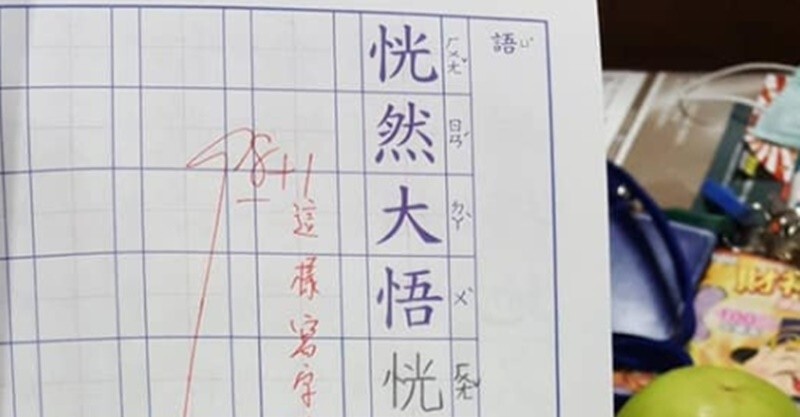 語ㄩˇ
恍ㄏㄨㄤˇ
然ㄖㄢˊ
大ㄉㄚˋ
悟ㄨˋ
恍ㄏㄨㄤˇ
98+1
這樣寫字
100